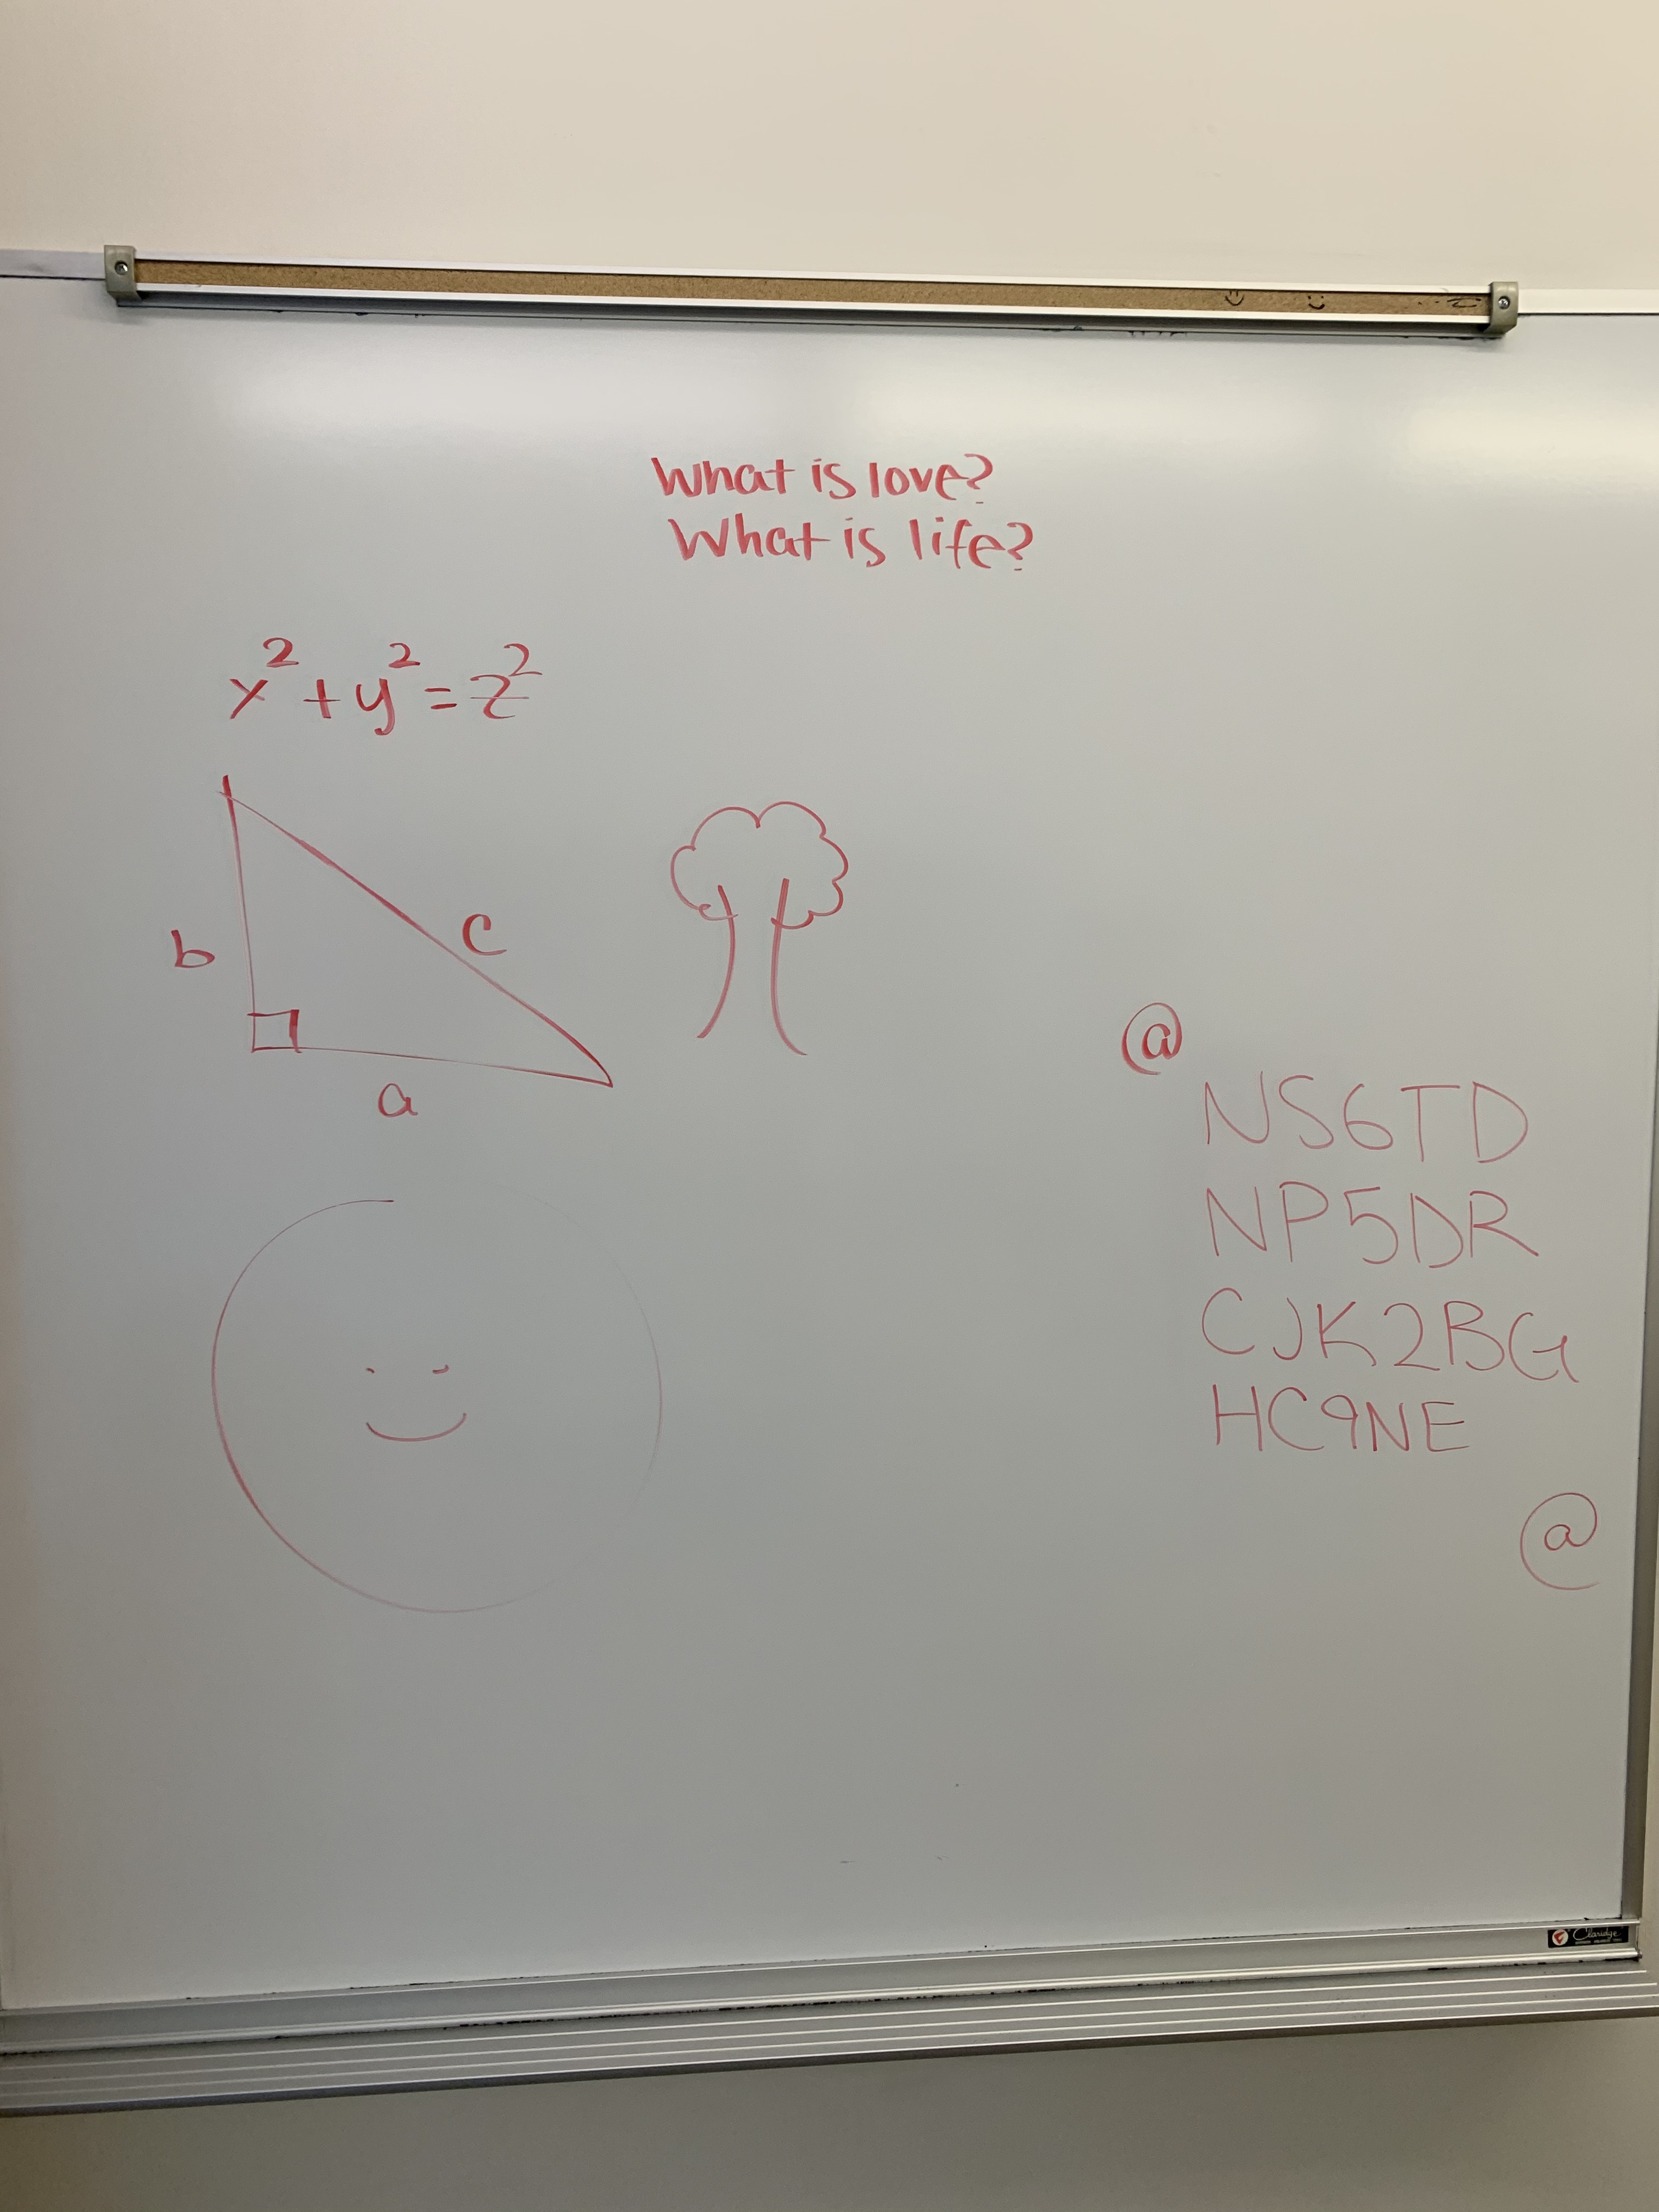 What is love?
What is life?
x² + y² = z²
b
c
a
@
NS6TD
NP5DR
CJK2BG
HC9NE
@
Claridge